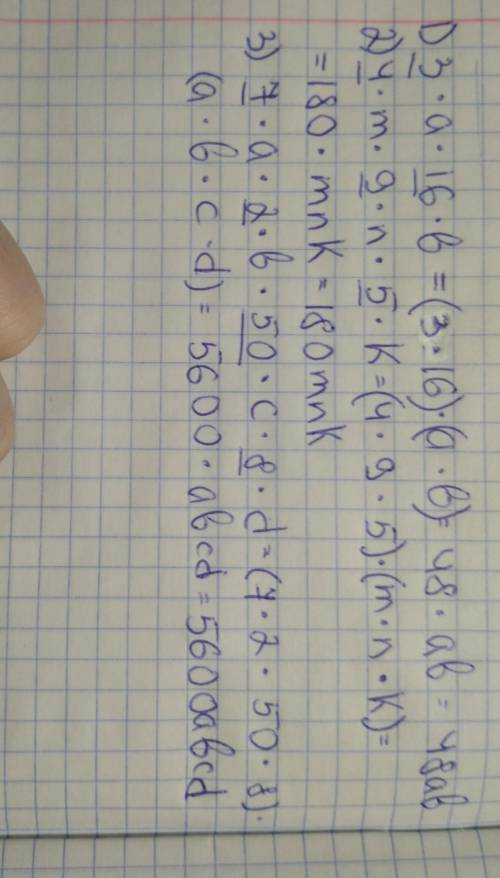 1) 3 · a · 16 · b = (3 · 16) · (a · b) = 48 · ab = 48ab
2) 4 · m · 9 · n · 5 · k = (4 · 9 · 5) · (m · n · k) =
= 180 · mnk = 180mnk
3) 7 · a · 2 · b · 50 · c · 8 · d = (7 · 2 · 50 · 8) ·
(a · b · c · d) = 5600 · abcd = 5600abcd